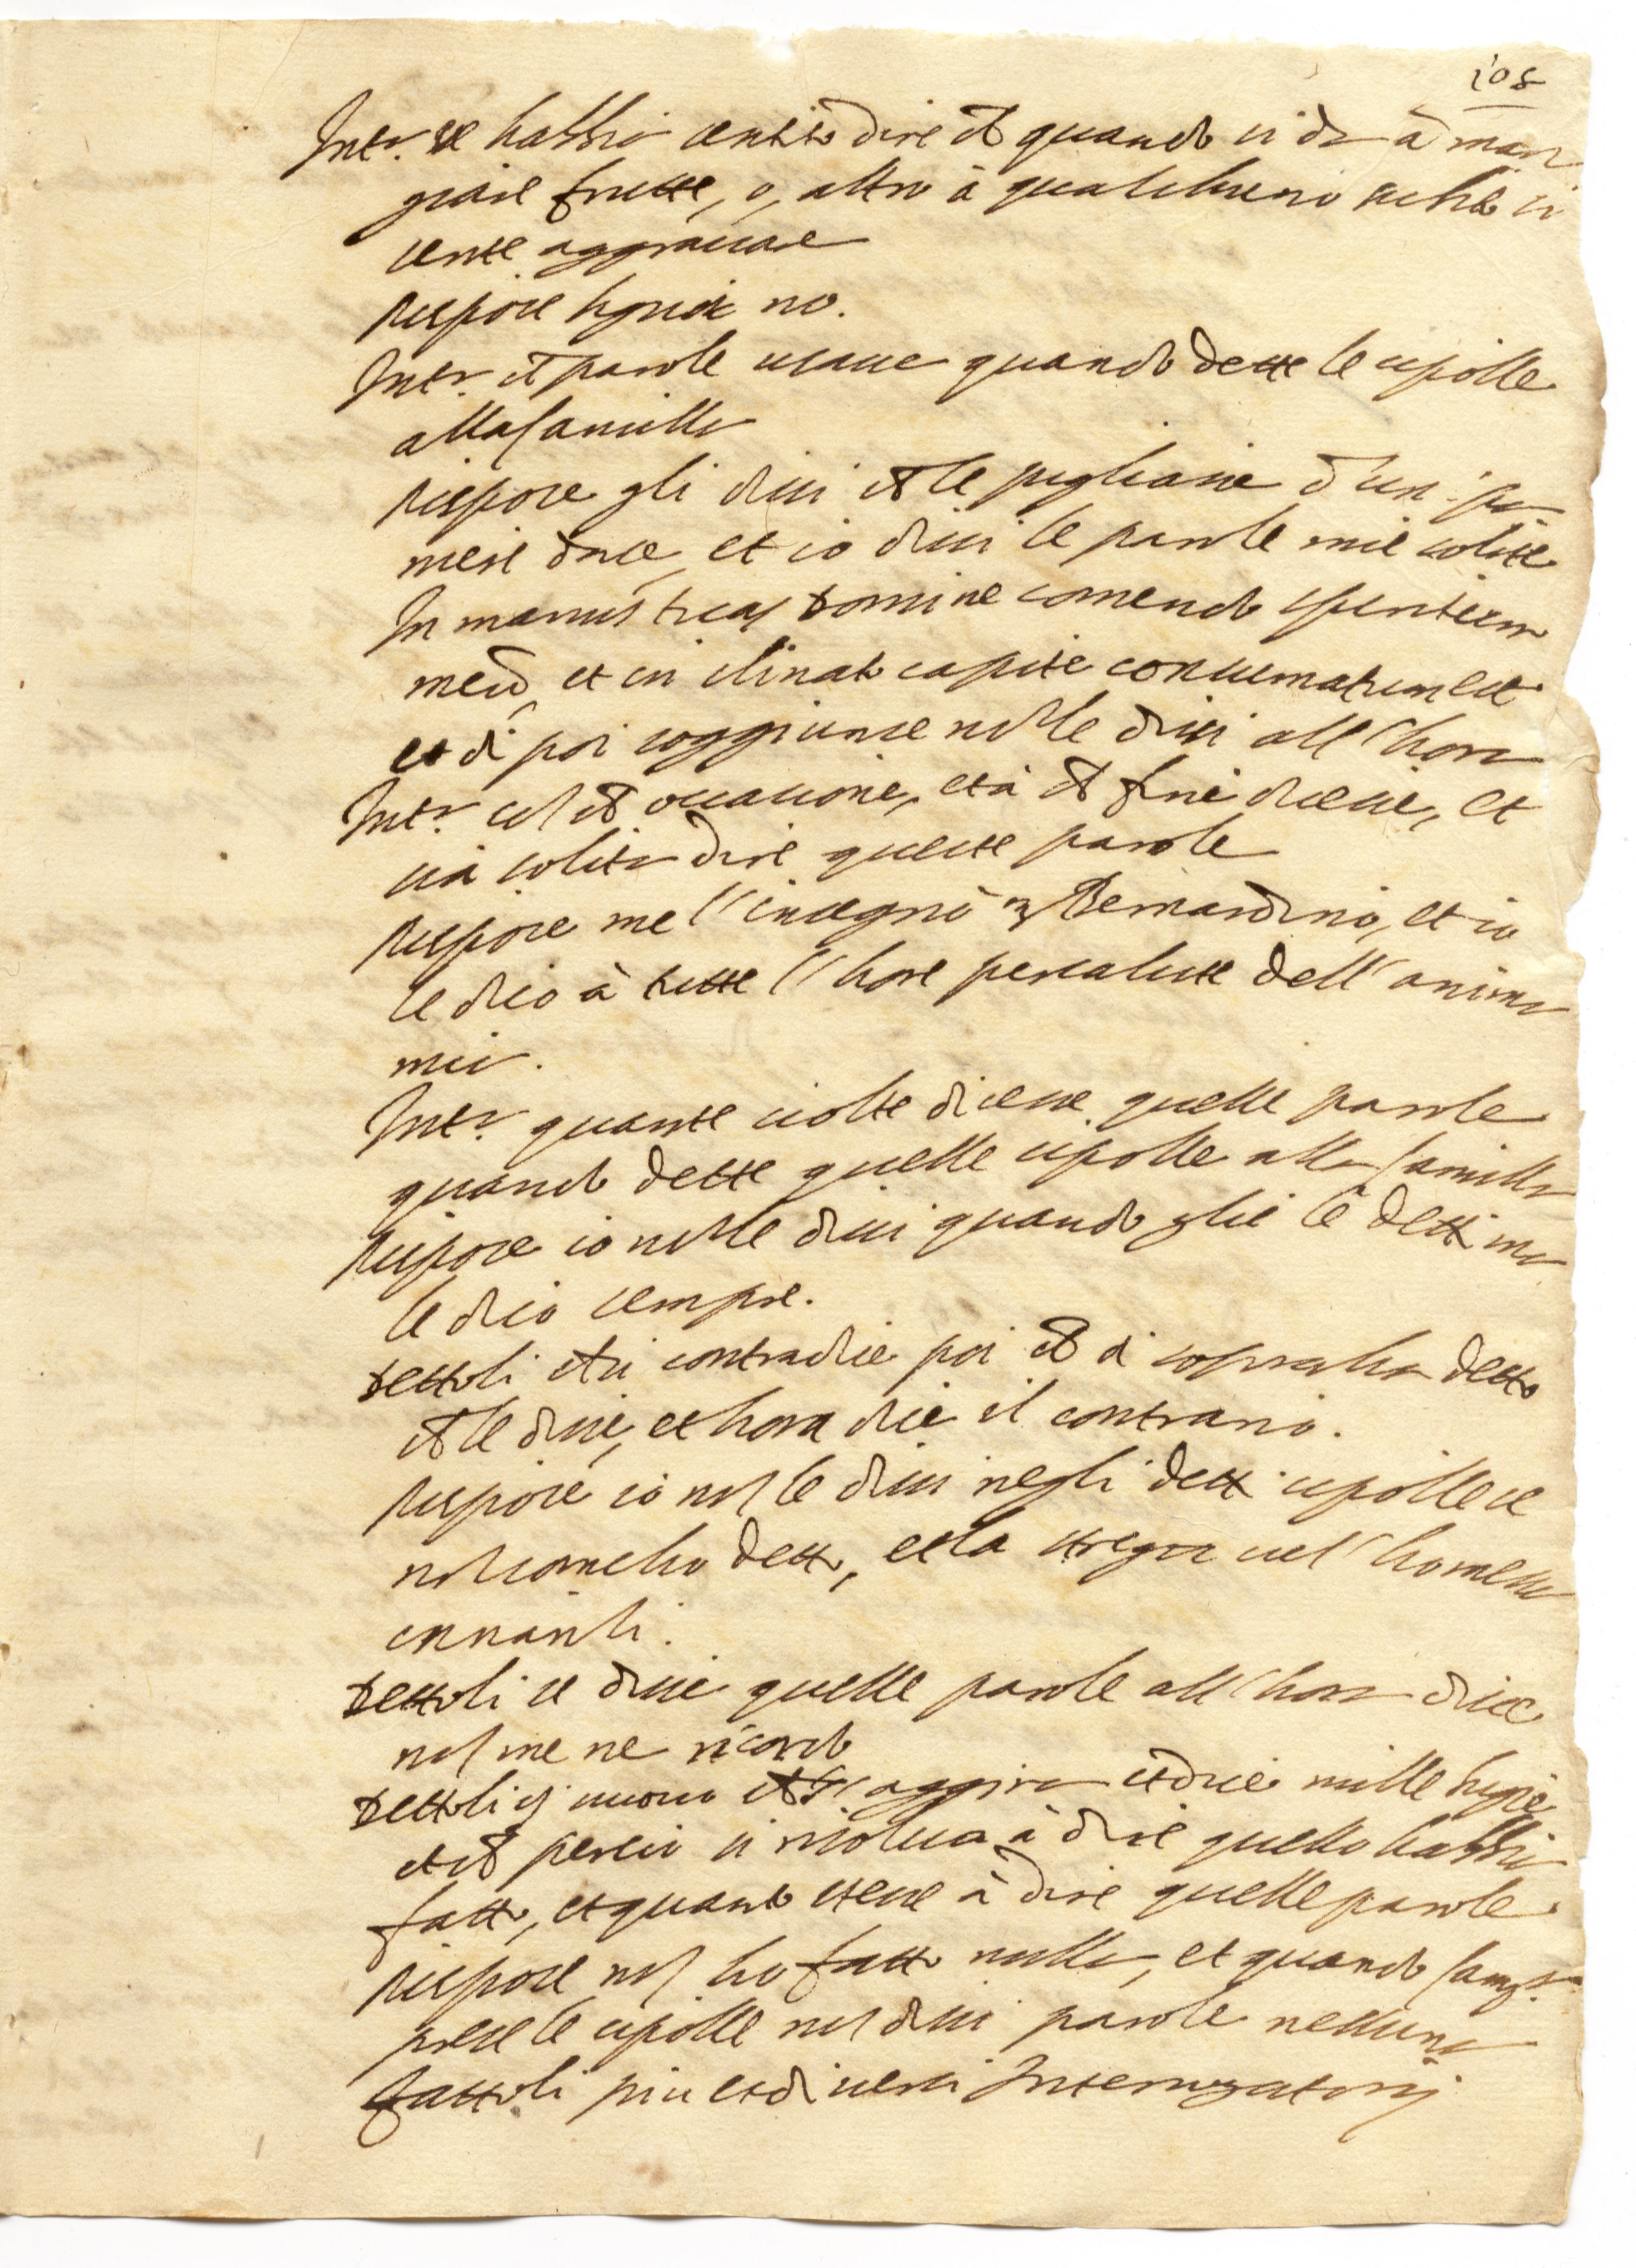 105
Intr. se habbia sentito dire ch quando si da à man
giare frutte, o, altro à qualchuno subito si
sente aggravare
rispose signor no.
Intr. ch parole usasse quando dette le cipolle
alla Camilla
rispose gli dissi ch le pigliassi d'un
mese dua, et io dissi le parole mie solite
In manus tuas domine comendo spiritum
meũ, et in clinato capite consumatum est
et di poi soggiunse nõ le dissi all'hora
Intr. cõ ch occasione, et à ch fine dicessi, et
sia solita dire queste parole
rispose me l'insegnò Bernardino, et io
le dico à tutte l'hore per salute dell'anima
mia.
Intr. quante volte dicesse quelle parole
quando dette quelle cipolle alla Camilla
rispose io nõ le dissi quando glie le detti ma
le dico sempre.
dettoli ch si contradice poi ch di sopra ha detto
ch le disse, et hora dice il contrario.
rispose io nõ le dissi negli detti cipolle se
nõ come ho detto, et la strega vel'ho messa
innanti.
dettoli se disse quelle parole all'hora dice
nõ me ne ricordo
dettoli di nuovo ch s'aggira et dice mille bugie
et ch perciò si risolva à dire quello habbia
fatto, et quanto stesse à dire quelle parole
rispose nõ ho fatto nulla, et quando
prese le cipolle nõ dissi parole nessuna
fattoli piu et diversi Interrogatorij